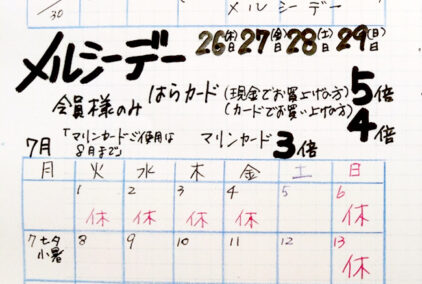 30
メルシーデー
メルシーデー 26日(木)27日(金)28日(土)29日(日)
会員様のみ はらカード(現金でお買上げの方)5倍
(カードでお買い上げの方)4倍
「マリンカードご使用は8月まで」 マリンカード3倍
7月
月 火 水 木 金 土 日
1 2 3 4 5 6
休 休 休 休 休
7 七夕 小暑 8 9 10 11 12 13
休